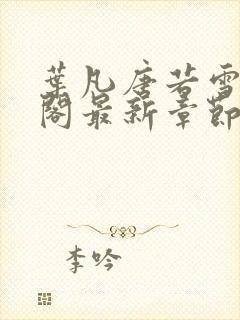 葉凡唐若雪
閣最新章節
李吟